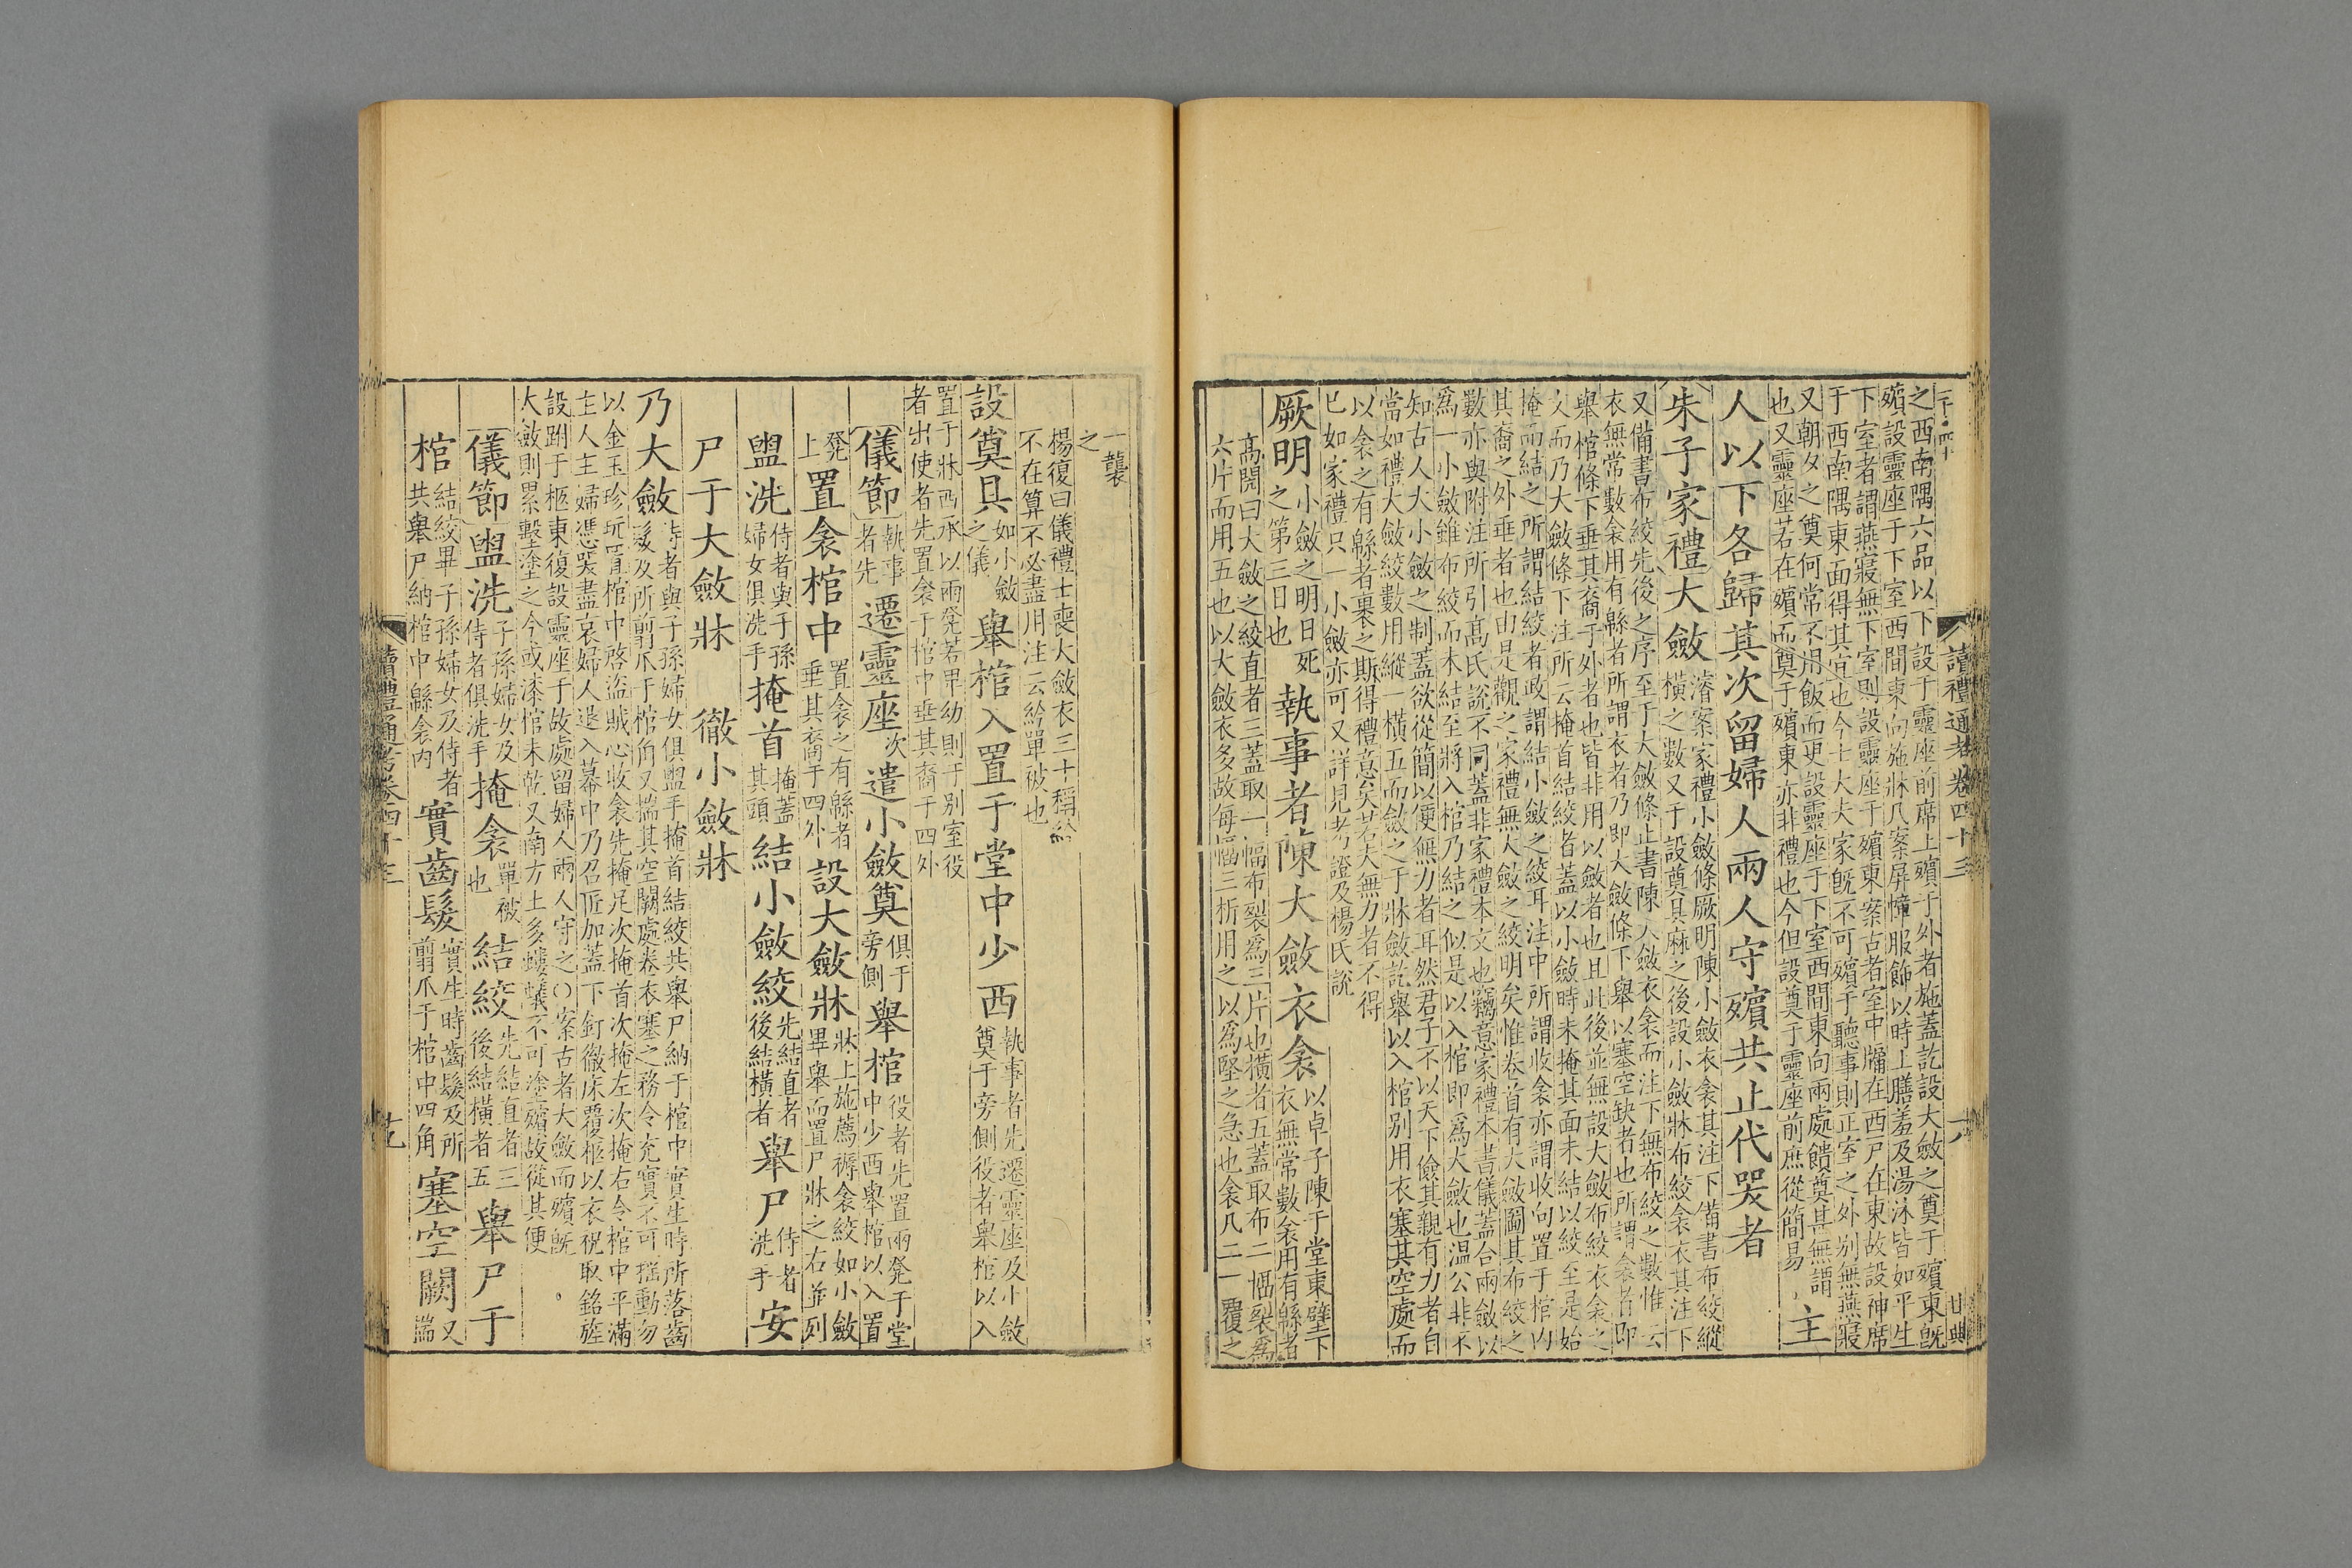 讀禮通考卷四十三
之西南隅六品以下設于靈座前席上殯于外者施蓋訖設大斂之奠于殯東既
殯設靈座于下室西間東向施牀几案屏幛服飾以時上膳羞及湯沐皆如平生
下室者謂燕寢無下室則設靈座于殯東案古者室中牖在西戶在東故設神席
于西南隅東面得其宜也今士大夫家既不可殯于聽事則正室之外别無燕寢
又朝夕之奠何常不用飯而更設靈座于下室西間東向兩處饋奠甚無謂
也又靈座若在殯而奠于殯東亦非禮也今但設奠于靈座前庶從簡易 主
人以下各歸其次留婦人兩人守殯共止代哭者
朱子家禮大斂 濬案家禮小斂條厥明陳小斂衣衾其注下備書布絞縱
橫之數又于設奠具麻之後設小斂牀布絞衾衣其注下
又備書布絞先後之序至于大斂條止書陳大斂衣衾而注下無布絞之數惟云
衣無常數衾用有緜者所謂衣者乃即大斂條下舉以塞空缺者也所謂衾者即
舉棺條下垂其裔于外者也皆非用以斂者也且此後並無設大斂布絞衣衾之
文而乃大斂條下注所云掩首結絞者蓋以小斂時未掩其面未結以絞至是始
掩而結之所謂結絞者政謂結小斂之絞耳注中所謂收衾亦謂收向置于棺内
其裔之外垂者也由是觀之家禮無大斂之絞明矣惟卷首有大斂圖其布絞之
數亦與附注所引高氏說不同蓋非家禮本文也竊意家禮本書儀蓋合兩斂以
爲一小斂雖布絞而未結至將入棺乃結之似是以入棺即爲大斂也温公非不
知古人大小斂之制蓋欲從簡以便無力者耳然君子不以天下儉其親有力者自
當如禮大斂絞數用縱一橫五而斂之于牀斂訖舉以入棺别用衣塞其空處而
以衾之有緜者裹之斯得禮意矣若夫無力者不得
已如家禮只一小斂亦可又詳見考證及楊氏說
厥明 小斂之明日死之第三日也 執事者陳大斂衣衾 以卓子陳于堂東壁下衣無常數衾用有緜者
高閌曰大斂之絞直者三蓋取一幅布裂爲三片也橫者五蓋取布二幅裂爲
六片而用五也以大斂衣多故每幅三析用之以爲堅之急也衾凡二一覆之
一襲之
楊復曰儀禮士喪大斂衣三十稱紟
不在算不必盡用注云紟單被也
設奠具 如小斂之儀 舉棺入置于堂中少西 執事者先遷靈座及小斂奠于旁側役者舉棺以入
置于牀西承以兩凳若卑幼則于别室役
者出使者先置衾于棺中垂其裔于四外
儀節 執事者先 遷靈座 次 遣小斂奠 俱于旁側 舉棺 役者先置兩凳于堂中少西舉棺以入置
凳上 置衾棺中 置衾之有緜者垂其裔于四外 設大斂牀 牀上施薦褥衾絞如小斂畢舉而置尸牀之右並列
盥洗 侍者與子孫婦女俱洗手 掩首 掩蓋其頭 結小斂絞 先結直者後結橫者 舉尸 侍者洗手 安
尸于大斂牀 徹小斂牀
乃大斂 侍者與子孫婦女俱盥手掩首結絞共舉尸納于棺中實生時所落齒
髮及所翦爪于棺角又揣其空闕處卷衣塞之務令充實不可搖動勿
以金玉珍玩置棺中啓盜賊心收衾先掩足次掩首次掩左次掩右令棺中平滿
主人主婦憑哭盡哀婦人退入幕中乃召匠加蓋下釘徹床覆柩以衣祝取銘旌
設跗于柩東復設靈座于故處留婦人兩人守之○案古者大斂而殯既
大斂則累墼塗之今或漆棺未乾又南方上多螻蟻不可塗殯故從其便
儀節 盥洗 子孫婦女及侍者俱洗手 掩衾 單被也 結絞 先結直者三後結橫者五 舉尸于
棺 結絞畢子孫婦女及侍者共舉尸納棺中緜衾内 實齒髮 實生時齒髮及所翦爪于棺中四角 塞空闕 又揣
讀禮通考卷四十三